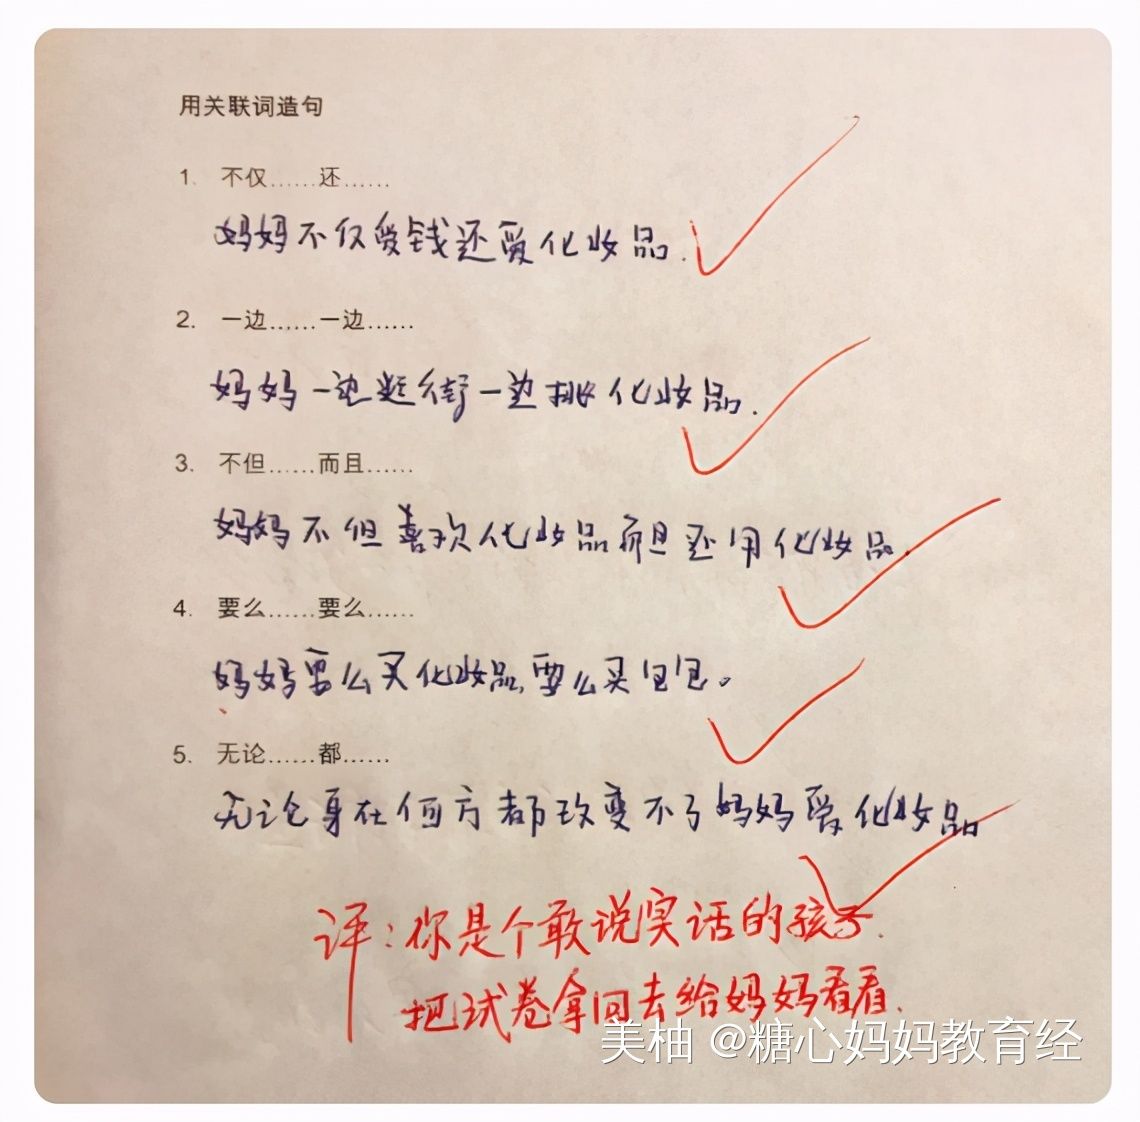 用关联词造句
1. 不仅……还……
妈妈不仅爱钱还爱化妆品.
2. 一边……一边……
妈妈一边逛街一边挑化妆品.
3. 不但……而且……
妈妈不但喜欢化妆品而且还用化妆品.
4. 要么……要么……
妈妈要么买化妆品,要么买包包。
5. 无论……都……
无论身在何方都改变不了妈妈爱化妆品
评:你是个敢说实话的孩子.
把试卷拿回去给妈妈看看.
美柚 @糖心妈妈教育经